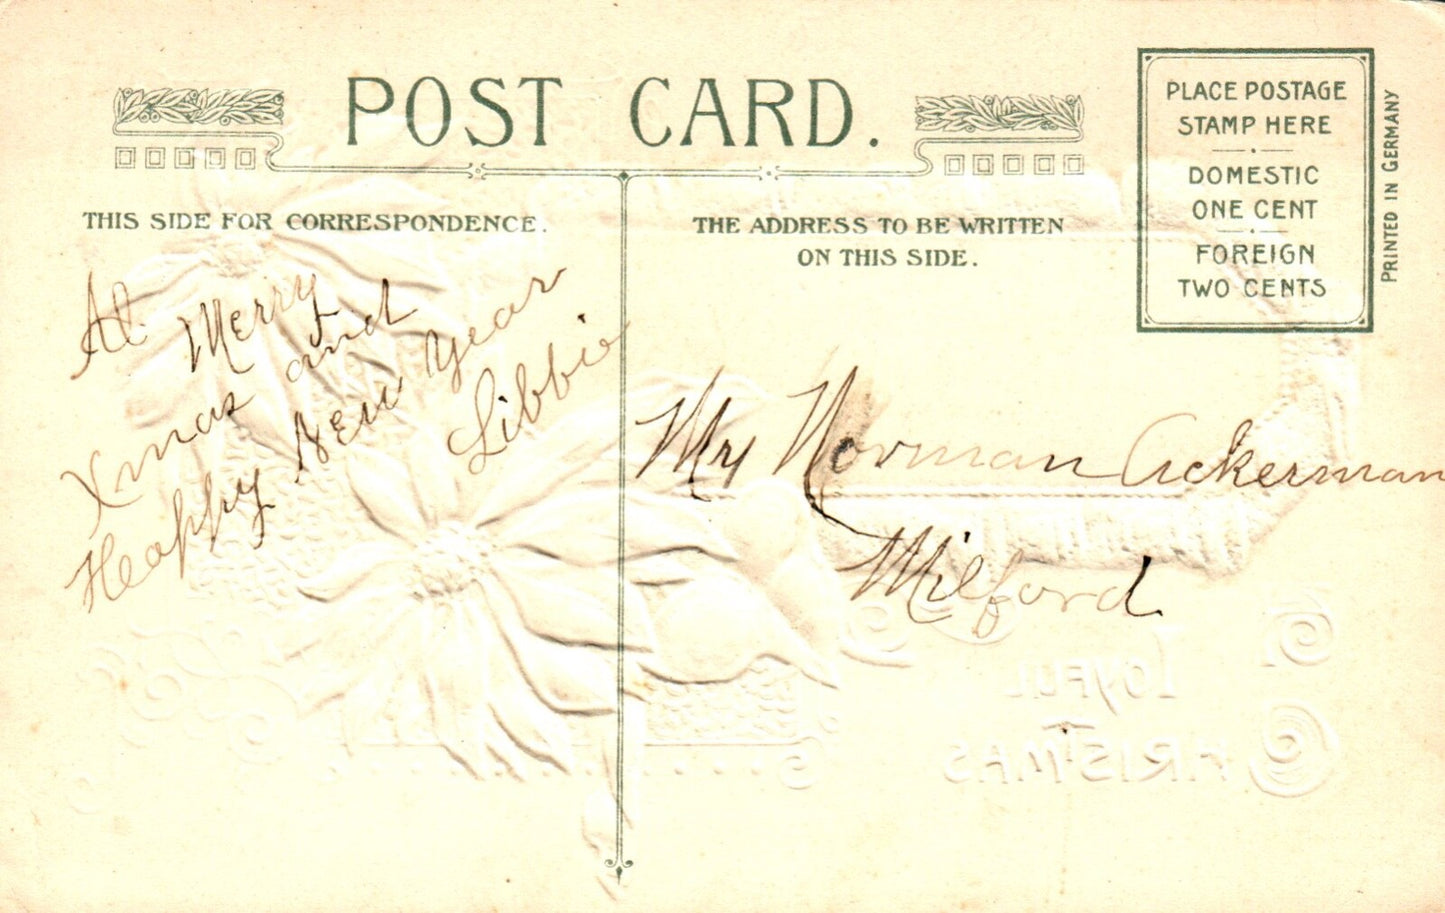 POST CARD.
THIS SIDE FOR CORRESPONDENCE.
A Merry
Xmas and
Happy New Year
Libbie
THE ADDRESS TO BE WRITTEN
ON THIS SIDE.
Mr Norman Ackerman
Milford
PLACE POSTAGE
STAMP HERE
DOMESTIC
ONE CENT
FOREIGN
TWO CENTS
PRINTED IN GERMANY
JOYFUL
CHRISTMAS